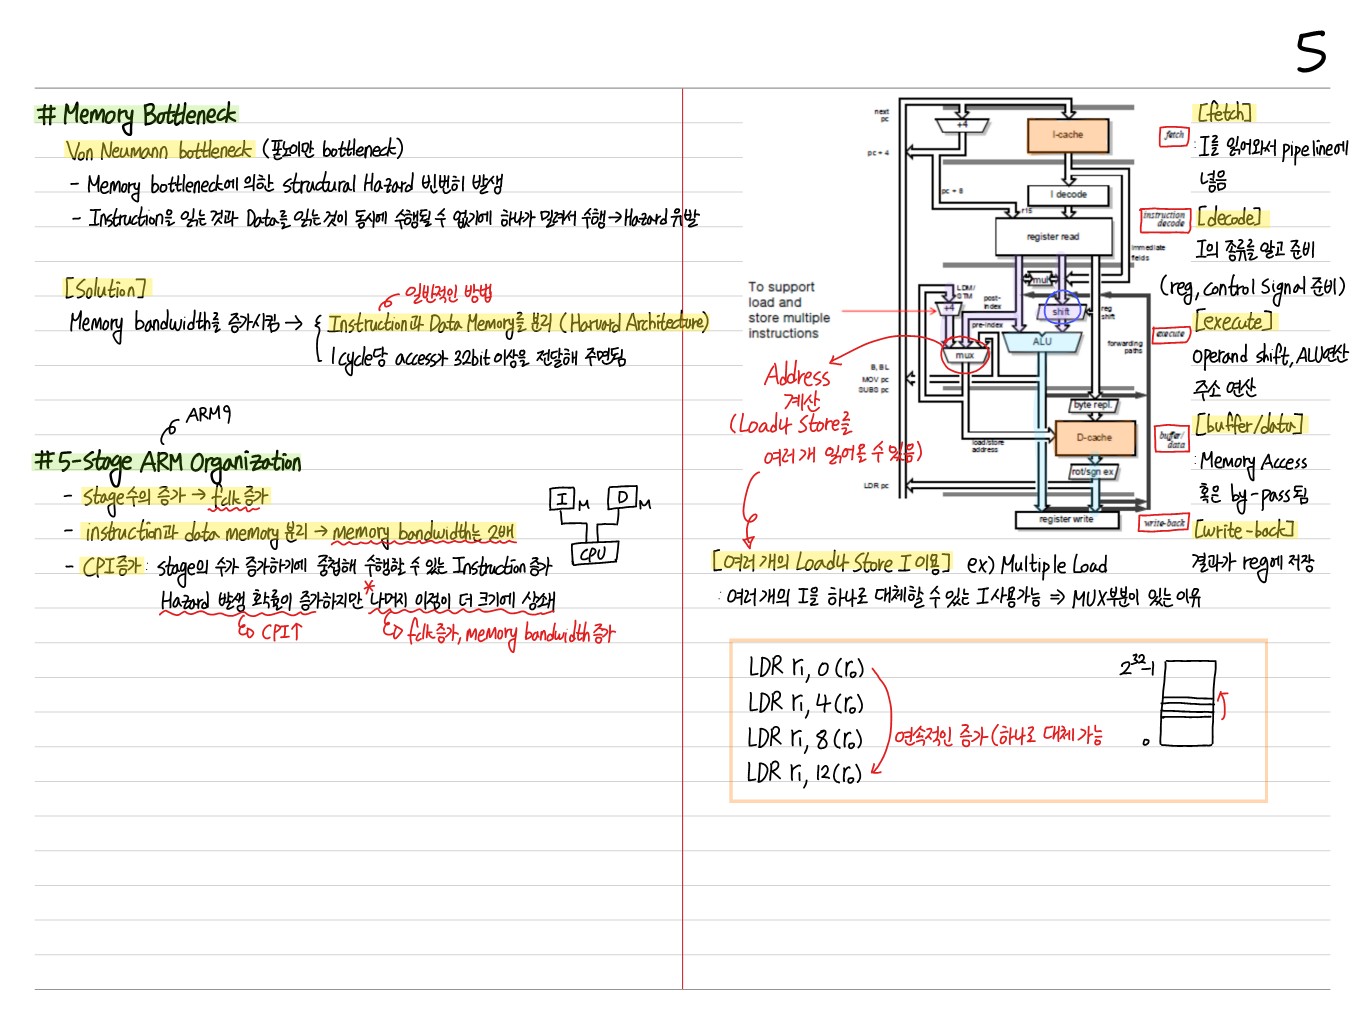 5
# Memory Bottleneck
Von Neumann bottleneck (폰노이만 bottleneck)
- Memory bottleneck에 의한 structural Hazard 빈번히 발생
- Instruction을 읽는 것과 Data를 읽는 것이 동시에 수행될 수 없기에 하나가 밀려서 수행 → Hazard 유발
[Solution]
일반적인 방법
Memory bandwidth를 증가시킴 → { Instruction과 Data Memory를 분리 (Harvard Architecture)
1 cycle당 access가 32bit 이상을 전달해 주면됨
ARM9
# 5-Stage ARM Organization
- stage수의 증가 → fclk 증가
- instruction과 data memory 분리 → memory bandwidth는 2배
I M D M
CPU
- CPI 증가 : stage의 수가 증가하기에 중첩해 수행할 수 있는 Instruction 증가
Hazard 발생 확률이 증가하지만 * 나머지 이점이 더 크기에 상쇄
CPI↑
fclk증가, memory bandwidth 증가
next
pc
+4
I-cache
fetch
pc + 4
pc + 8
I decode
r15
instruction
decode
register read
immediate
fields
mul
LDM/
STM
+4
post-
index
shift
reg
shift
pre-index
ALU
execute
forwarding
paths
mux
B, BL
MOV pc
SUBS pc
byte repl.
load/store
address
D-cache
buffer/
data
rot/sgn ex
LDR pc
register write
write-back
To support
load and
store multiple
instructions
Address
계산
(Load나 Store를
여러 개 읽어올 수 있음)
[fetch]
: I를 읽어와서 pipeline에
넣음
[decode]
I의 종류를 알고 준비
(reg, control signal 준비)
[execute]
operand shift, ALU연산
주소 연산
[buffer/data]
: Memory Access
혹은 by-pass 됨
[write-back]
결과가 reg에 저장
[여러 개의 Load나 Store I 이용] ex) Multiple Load
: 여러 개의 I을 하나로 대체할 수 있는 I 사용가능 ⇒ MUX부분이 있는 이유
LDR r1, 0(r0)
LDR r1, 4(r0)
LDR r1, 8(r0)
LDR r1, 12(r0)
연속적인 증가 (하나로 대체 가능
2^32-1
0